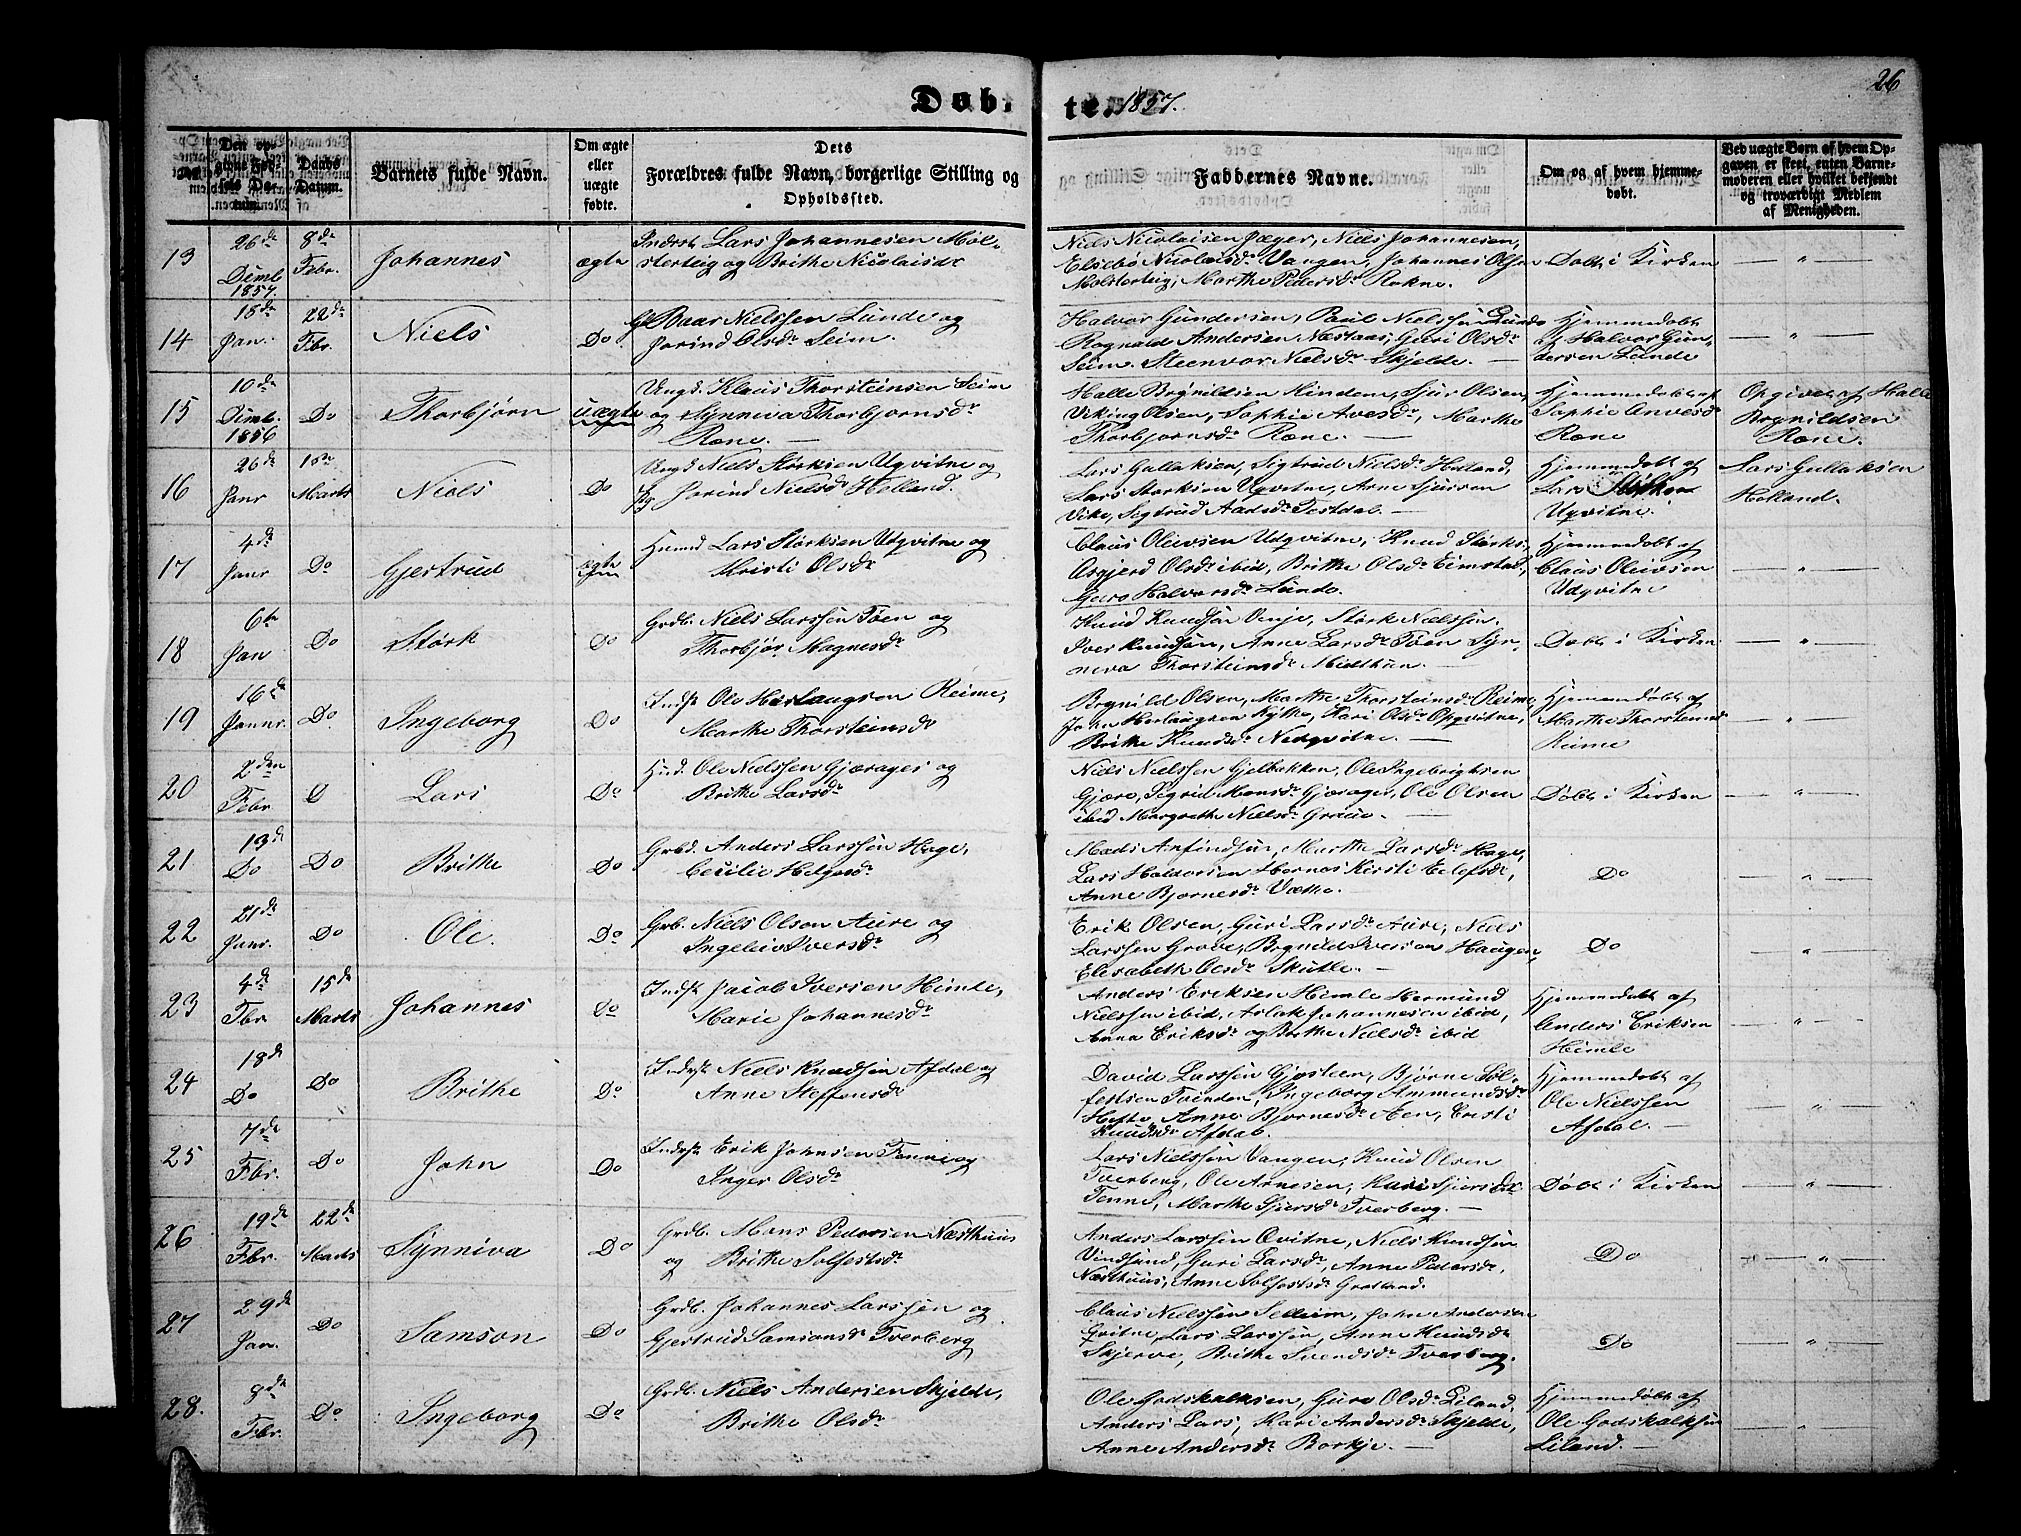 26
Døb. te. 1857.
Den opgivne Fødsels Datum.
Daabs Datum.
Barnets fulde Navn.
Om ægte eller uægte fødte.
Dets
Forældres fulde Navn, borgerlige Stilling og
Opholdssted.
Faddernes Navne.
Om og af hvem hjemmedøbt.
Ved uægte Børn af hvem Opgaven er skeet, enten Barnemoderen eller hvilket bekjendt og troværdigt Medlem af Menigheden.
13
26de Dcmb. 1857.
8de Febr.
Johannes
ægte
Inderst Lars Johannesen Møl-
sterteig og Brithe Nicolaisdr
Niels Nicolaisen Jæger, Niels Johannesen,
Elsebe Nicolaisdr Vangen, Johannes Olsen
Molsterteig, Marthe Pedersdr Rokne.
Døbt i Kirken
14
18de Jan.
22de Fbr.
Niels
Do
Baar Nielssen Lunde og
Jorind Olsdr Seim.
Halvor Gundersen, Paul Nielssen Lunde
Rognald Andersen Næstaas, Guri Olsdr
Seim. Steenvor Nielsdr Skjelde.
Hjemmedøbt
af Halvor Gun-
dersen Lunde
15
10de Dcmb. 1856
Do
Thorbjørn
uægte
Ungk. Klaus Thorsteinsen Seim
og Synneva Thorbjornsdr
Rone.
Halle Brynildsen Hindem, Sjur Olsen,
Viking Olsen, Sophie Avesdr, Marthe
Thorbjornsdr Rone.
Hjemmedøbt af
Sophie Anvesdr
Rone
Opgivet af Halle
Brynildsen
Rone.
16
26de Janr
1ste Marts
Niels
Do
Ungk. Niels Størksen Ugvitne og
Pg. Jorind Nielsdr Holland.
Lars Gullaksen, Sigtrud Nielsdr Holland,
Lars Storksen Ugvitne, Arne Sjursen
Vike, Sigtrud Aadsdr Testdal.
Hjemmedøbt af
Lars Størksen
Ugvitne.
Lars Gullaksen
Holland.
17
4de Janr
Do
Gjertrud
ægte
Huusmd Lars Størksen Udqvitne og
Kristi Olsdr
Claus Oleivsen Udqvitne, Knud Størks.
Asgjerd Olsdr ibid, Brithe Olsdr Eimstad,
Guro Halvorsdr Lunde.
Hjemmedøbt af
Claus Oleivsen
Udqvitne
18
6te Jan
Do
Størk
Do
Grdb. Niels Larssen Tøen og
Thorbjør Magnesdr
Knud Knudsen Vinje, Størk Nielssen.
Iver Knudsen, Anne Larsdr Tøen Syn-
neva Thorsteinsdr Midthun.
Døbt i Kirken
19
16de Janr.
Do
Ingeborg
Do
Indst. Ole Herlaugsen Reime,
Marthe Thorsteinsdr
Brynild Olsen, Marthe Thorsteinsdr Reime,
John Herlaugsen Kythe, Kari Olsdr Opqvitne,
Brithe Knudsdr Nedqvitne.
Hjemmedøbt af
Marthe Thorsteinsdr
Reime
20
2den Febr
D
Lars
Do
Hmd. Ole Nielssen Gjærager og
Brithe Larsdr
Niels Nielssen Gjelbakken, Ole Ingebrigtsen
Gjære, Sigrid Monsdr Gjærager, Ole Olsen
ibid Margrethe Nielsdr Graue.
Døbt i Kirken
21
13de Do
Do
Brithe
Do
Grbd. Anders Larssen Hage,
Cecilie Helgesdr
Mads Anfindsen, Marthe Larsdr Hage,
Lars Haldorsen Hornes Kirsti Eilefsdr,
Anne Bjornesdr Væthe.
Do
22
21de Janr.
Do
Ole
Do
Grb. Niels Olson Aure og
Ingeleiv Iversdr
Erik Olsen, Guri Larsdr Aure, Niels
Larssen Grove, Brynild Iversen Haugen,
Elisabeth Olsdr Skutle.
Do
23
4de Fbr
15de Marts
Johannes
Do
Indst Jacob Iversen Himle,
Marie Johannesdr
Anders Eriksen Himle Hermund
Nielssen ibid, Aslak Johannesen ibid,
Anna Eriksdr og Brithe Nielsdr ibid
Hjemmedøbt af
Anders Eriksen
Himle
24
18de Do
Do
Brithe
Do
Indst Niels Knudsen Afdal og
Anne Steffensdr
David Larssen Gjosteen, Bjørne Sol-
festsen Tvinden, Ingeborg Ammundsdr
Hefte, Anne Bjornesdr Aen, Kristi
Knudsdr Afdal.
Hjemmedøbt af
Ole Nielssen
Afdal.
25
7de Fbr.
Do
John
Do
Indst Erik Johnsen Tenne og
Inger Olsdr
Lars Nielssen Vangen, Knud Olsen
Tverberg, Ole Arnesen, Kari Sjursdr
Tenne, Marthe Sjursdr Tverberg.
Døbt i Kirken
26
19de Fbr.
22de Marts
Synniva
Do
Grdb. Mons Pedersen Næsthuus
og Brithe Solfestsdr
Anders Larssen Qvitne, Niels Knudsen
Vindsand, Guri Larsdr, Anne Pedersdr,
Næsthuus, Anne Solfestsdr Grotland.
Do
27
29de Jan.
Do
Samson
Do
Grdb. Johannes Larssen og
Gjertrud Samsonsdr Tverberg
Claus Nielssen Selleim, John Andersen
Qvitne, Lars Larssen, Anne Knudsdr
Skjerve, Brithe Svendsdr Tverberg.
Do
28.
8de Fbr.
Do
Ingeborg
Do
Grdb. Niels Andersen Skjelde,
Brithe Olsdr
Ole Godskalksen, Guro Olsdr Liland,
Anders Lars, Kari Andersdr Skjelde,
Anne Andersdr Borkje.
Hjemmedøbt af
Ole Godskalksen
Liland.